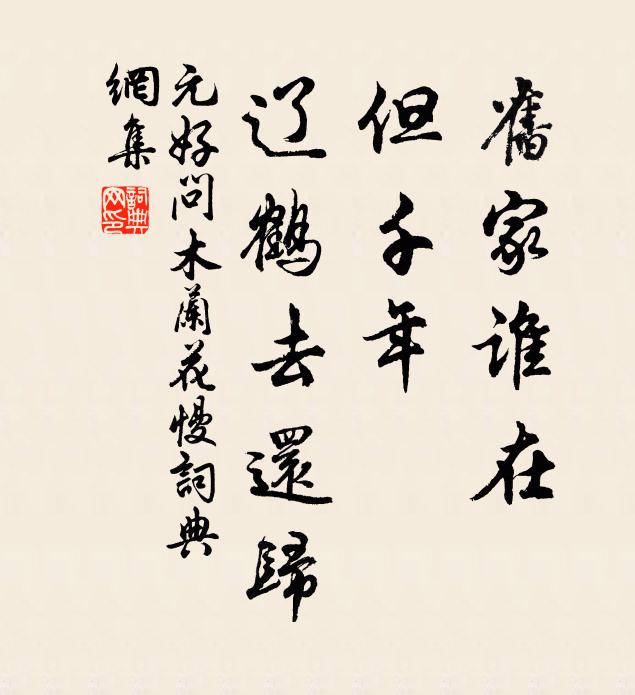 舊家誰在
但千年
辽鶴去還歸
元好问木蘭花慢詞典
網集
詞典
网印